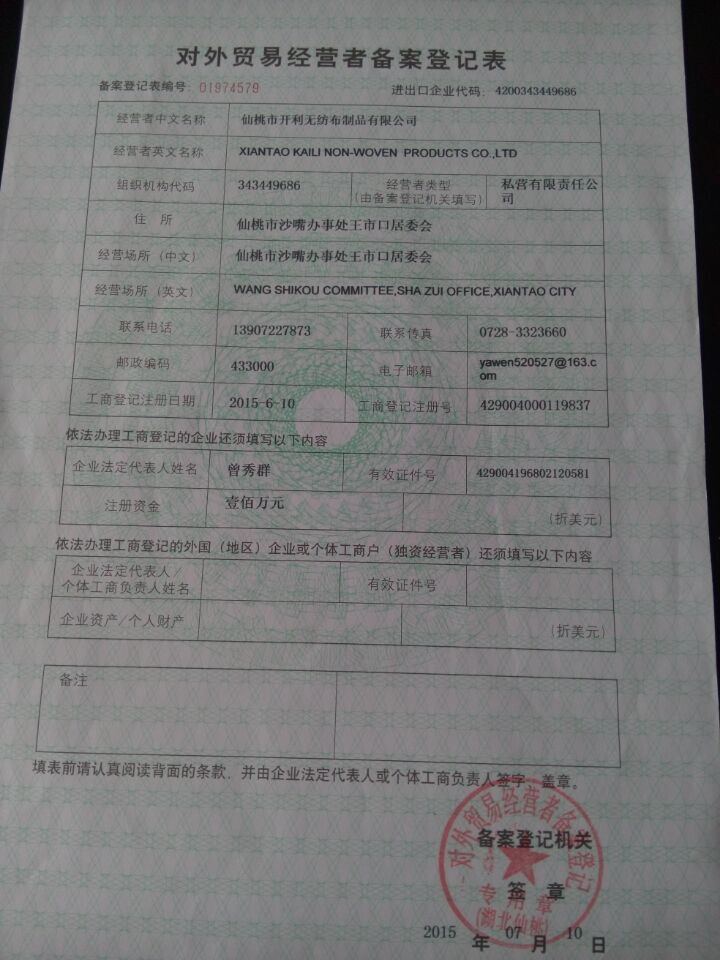 对外贸易经营者备案登记表
备案登记表编号: 01974579 进出口企业代码: 4200343449686
经营者中文名称 仙桃市开利无纺布制品有限公司
经营者英文名称 XIANTAO KAILI NON-WOVEN PRODUCTS CO.,LTD
组织机构代码 343449686 经营者类型 (由备案登记机关填写) 私营有限责任公司
住 所 仙桃市沙嘴办事处王市口居委会
经营场所（中文） 仙桃市沙嘴办事处王市口居委会
经营场所（英文） WANG SHIKOU COMMITTEE,SHA ZUI OFFICE,XIANTAO CITY
联系电话 13907227873 联系传真 0728-3323660
邮政编码 433000 电子邮箱 yawen520527@163.com
工商登记注册日期 2015-6-10 工商登记注册号 429004000119837
依法办理工商登记的企业还须填写以下内容
企业法定代表人姓名 曾秀群 有效证件号 429004196802120581
注册资金 壹佰万元 (折美元)
依法办理工商登记的外国（地区）企业或个体工商户（独资经营者）还须填写以下内容
企业法定代表人/
个体工商负责人姓名 有效证件号
企业资产/个人财产 (折美元)
备注
填表前请认真阅读背面的条款，并由企业法定代表人或个体工商负责人签字、盖章。
对外贸易经营者备案登记
备案登记机关
专用章
签 章
(湖北仙桃)
2015 年 07 月 10 日